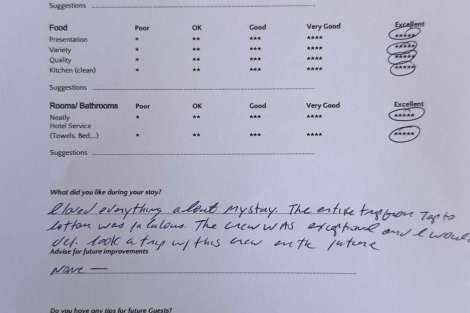 Suggestions
Food Poor OK Good Very Good Excellent
Presentation * ** *** **** *****
Variety * ** *** **** *****
Quality * ** *** **** *****
Kitchen (clean) * ** *** **** *****
Suggestions
Rooms/ Bathrooms Poor OK Good Very Good Excellent
Neatly * ** *** **** *****
Hotel Service
(Towels, Bed,...) * ** *** **** *****
Suggestions
What did you like during your stay?
I loved everything about my stay. The entire trip from Top to
bottom was fabulous. The crew was exceptional and I would
def. book a trip w/ this crew in the future
Advise for future improvements
None —
Do you have any tips for future Guests?